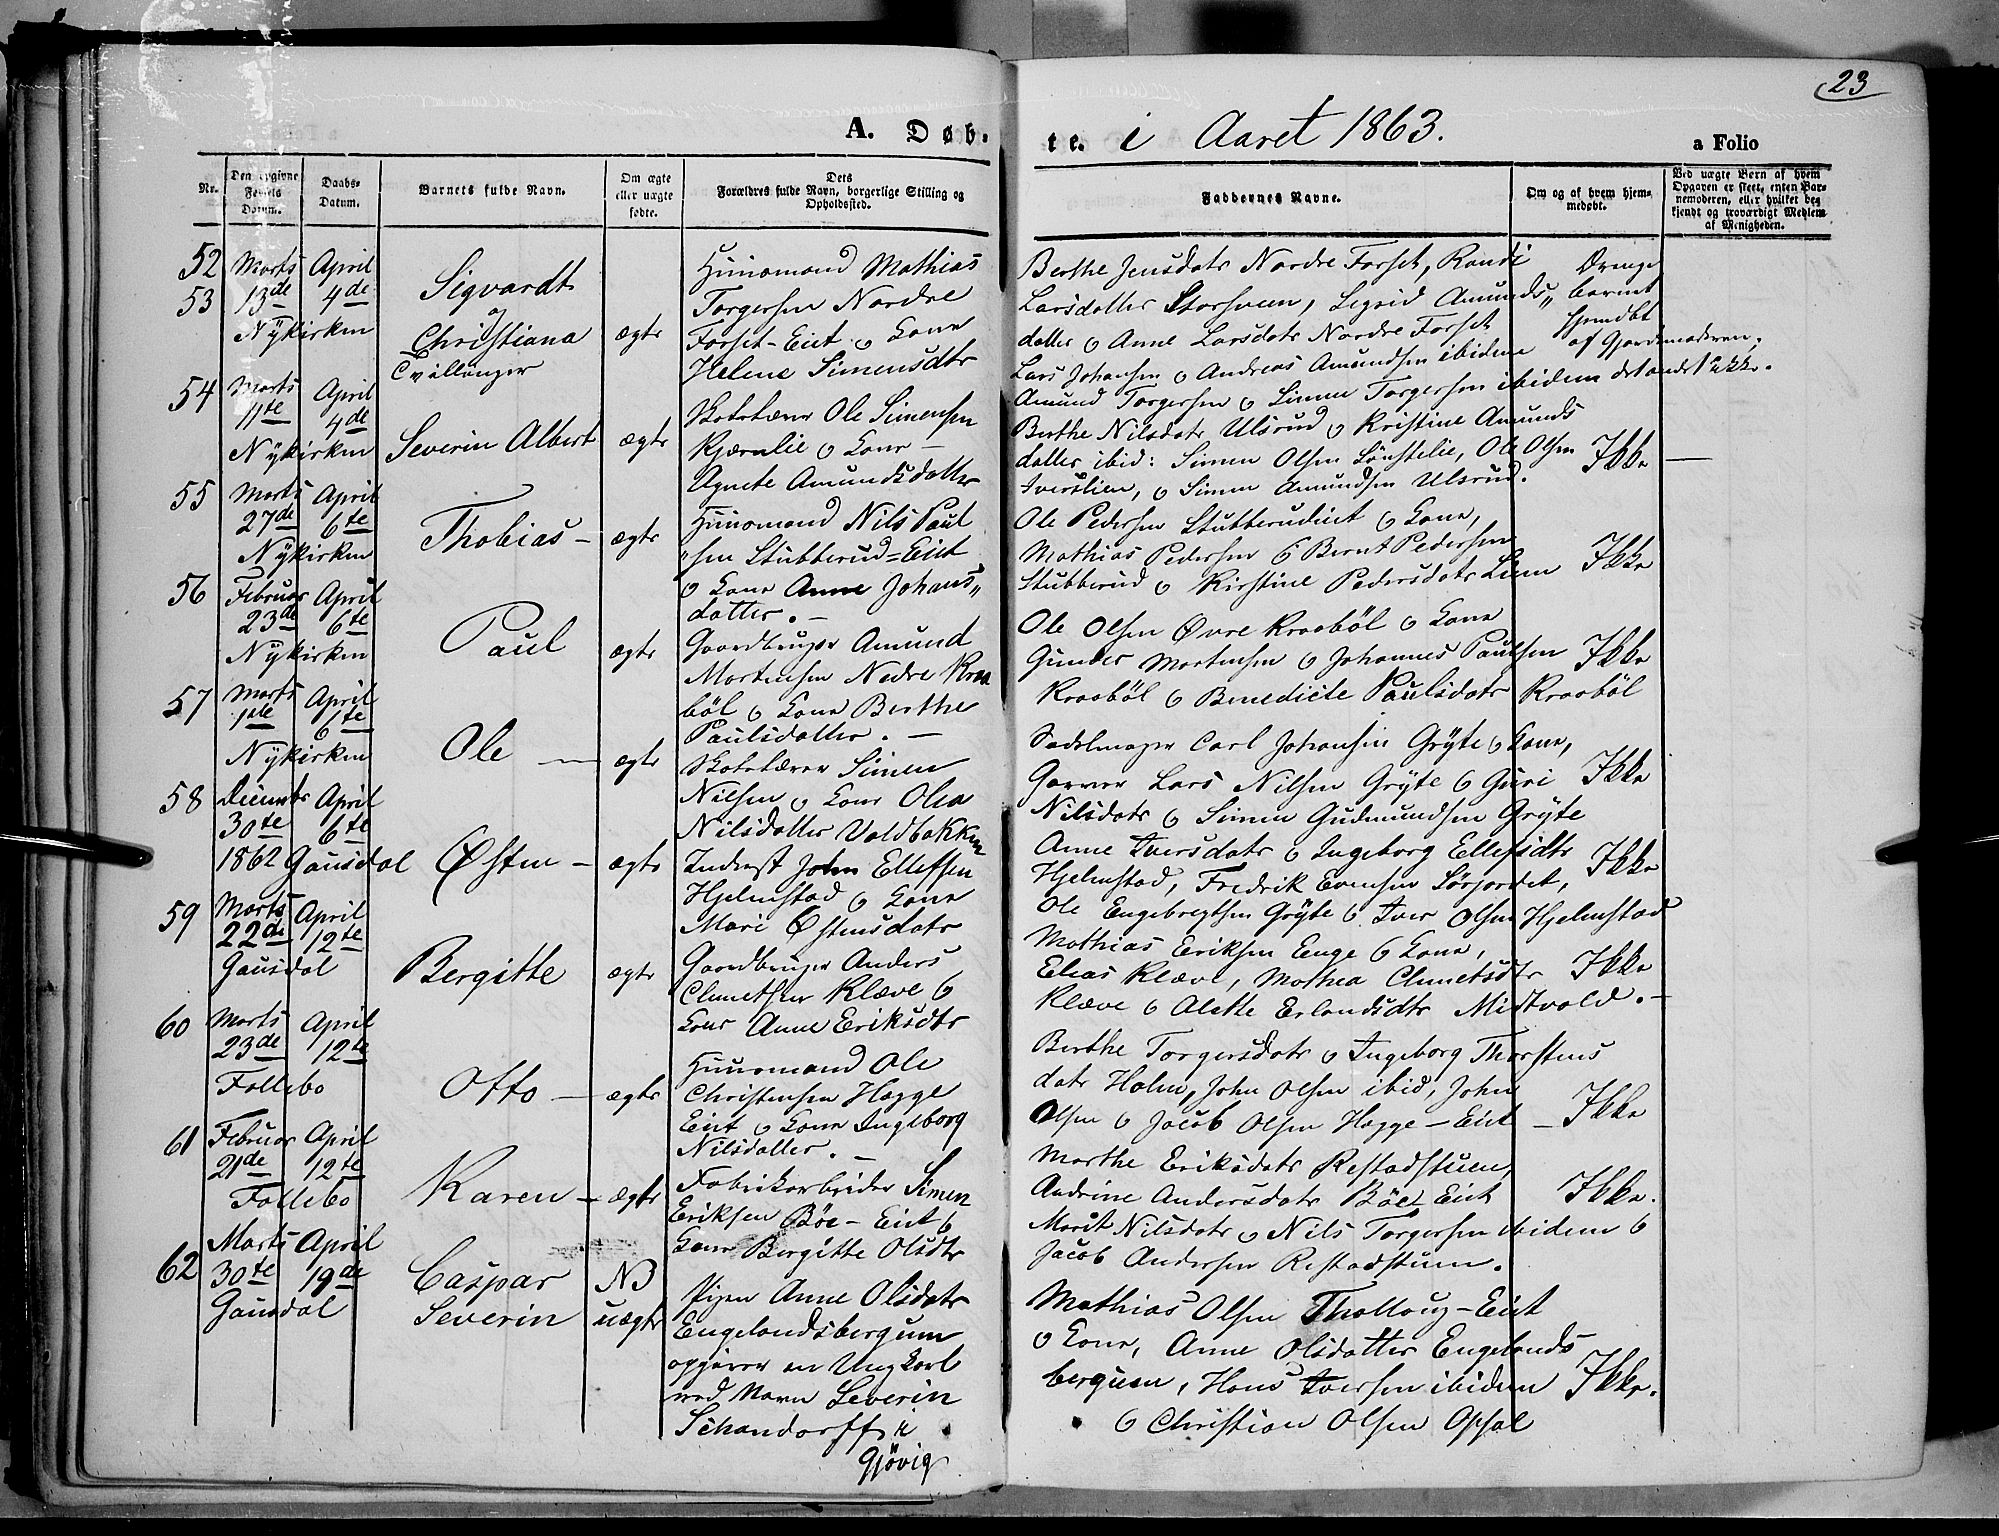 23
A. Døb-
te. i Aaret 1863.
a Folio
Nr.
Den opgivne Fødsels Datum.
Daabs-Datum.
Barnets fulde Navn.
Om ægte eller uægte fødte.
Dets Forældres fulde Navn, borgerlige Stilling og Opholdssted.
Faddernes Navne.
Om og af hvem hjemmedøbt.
Ved uægte Børn af hvem Opgaven er skeet, enten Barnemoderen, eller hvilket bekjendt og troværdigt Medlem af Menigheden.
52
53
Marts April
13de 4de
Nykirken
Sigvardt
o
Christiana
Tvillinger
ægte
Huusmand Mathias
Torgersen Nordre
Forset-Eiet o Kone
Helene Simensdtr
Berthe Jensdatr Nordre Forset, Randi
Larsdatter Storsveen, Sigrid Amunds„
datter o Anne Larsdatr Nordre Forset
Lars Johansen o Andreas Amundsen ibidem
Amund Torgersen o Simen Torgersen ibidem
Drenge
barnet
hjemdbt
af Gjordemoderen.
det andet ikke.
54
Marts April
11te 4de
Nykirken
Severin Albert
ægte
Skolelærer Ole Simensen
Kjærnlie o Kone –
Agnete Amundsdatter
Berthe Nilsdatr Ulsrud o Kristine Amunds
datter ibid: Simen Olsen Lønstelie, Ole Olsen
Iverslien, o Simen Amundsen Ulsrud.
Ikke —
55
Marts April
27de 6te
Nykirken
Thobias –
ægte
Huusmand Nils Paul
„sen Stubberud=Eiet
o Kone Anne Johans„
datter. –
Ole Pedersen Stubberudeiet o Kone,
Mathias Pedersen o Bernt Pedersen
Stubberud o Kirstine Pedersdatr Lien
Ikke
56
Februar April
23de 6te
Nykirken
Paul
ægte
Gaardbruger Amund
Mortensen Nedre Kraa
bøl o Kone Berthe
Paulsdatter. –
Ole Olsen Øvre Kraabøl o Kone
Gunder Mortensen o Johannes Paulsen
Kraabøl o Benedicte Paulsdatr Kraabøl
Ikke
57
Marts April
1ste 6te
Nykirken
Ole —
ægte
Skolelærer Simen
Nilsen o Kone Olea
Nilsdatter Voldbakken
Sadelmager Carl Johansen Gryte o Kone,
Garver Lars Nilsen Gryte o Guri
Nilsdatr o Simen Gudmundsen Gryte
Ikke
58
Decembr April
30te 6te
1862 Gausdal
Østen –
ægte
Inderst John Ellefsen
Hjelmstad o Kone
Mari Østensdatr
Anne Iversdatr o Ingeborg Ellefsdtr
Hjelmstad, Fredrik Evensen Sørjordet,
Ole Engebregtsen Gryte o Iver Olsen Hjelmstad
Ikke
59
Marts April
22de 12te
Gausdal
Bergitte
ægte
Gaardbruger Anders
Clemetsen Klæve o
Kone Anne Eriksdtr
Mathias Eriksen Enge o Kone,
Elias Klæve, Mathea Clemetsdtr
Klæve o Alette Erlandsdtr Midtvold. –
Ikke
60
Marts April
23de 12te
Follebo
Otto –
ægte
Huusmand Ole
Christensen Hagge
Eiet o Kone Ingeborg
Nilsdatter. –
Berthe Torgersdatr o Ingeborg Thorstens
datr Holm, John Olsen ibid, John
Olsen o Jacob Olsen Hagge–Eiet –
Ikke
61
Februar April
21de 12te
Follebo
Karen –
ægte
Fabrikarbeider Simen
Eriksen Bøe–Eiet o
Kone Bergitte Olsdtr
Marthe Eriksdatr Restadstuen,
Andrine Andersdatr Bøe Eiet
Marit Nilsdatr o Nils Torgersen ibidem o
Jacob Andersen Restadstuen.
Ikke.
62
Marts April
30te 19de
Gausdal
Caspar
Severin
NB
uægte
Pigen Anne Olsdatr
Engelandsbergum
opgiver en Ungkarl
ved Navn Severin
Schandorff i
Gjøvig
Mathias Olsen Thollaug–Eiet
o Kone, Anne Olsdatter Engelands
berguen, Hans Iversen ibidem
o Christian Olsen Opsal
Ikke.